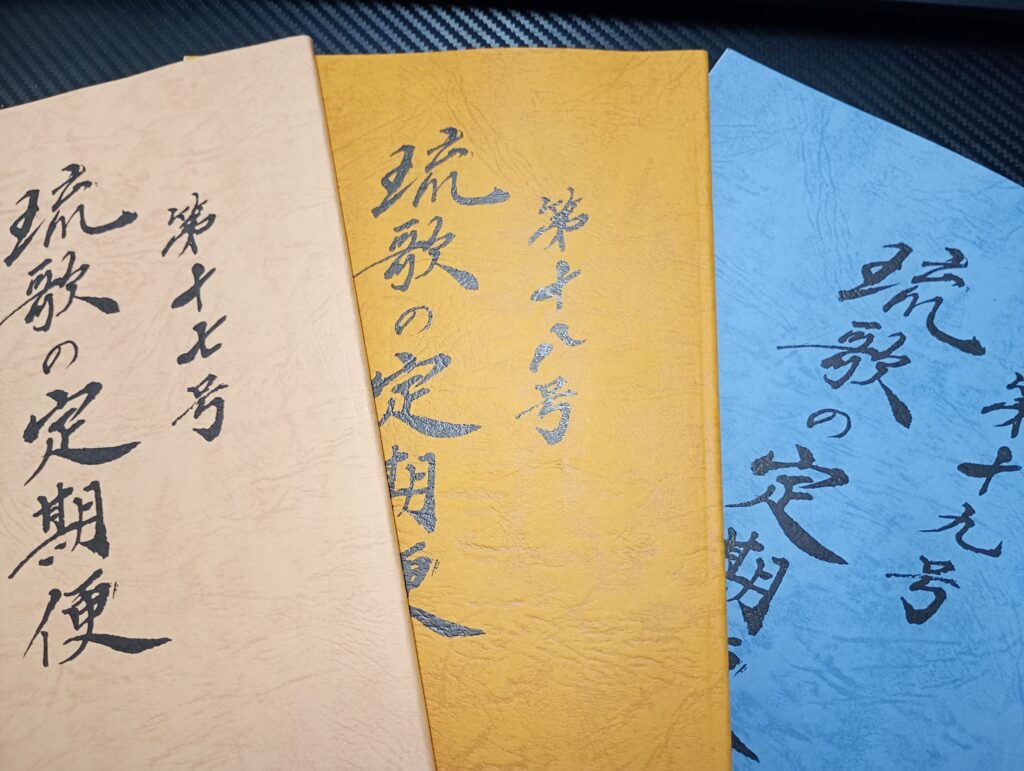 第十七号
琉歌の定期便
第十八号
琉歌の定期便
第十九号
琉歌の定期便